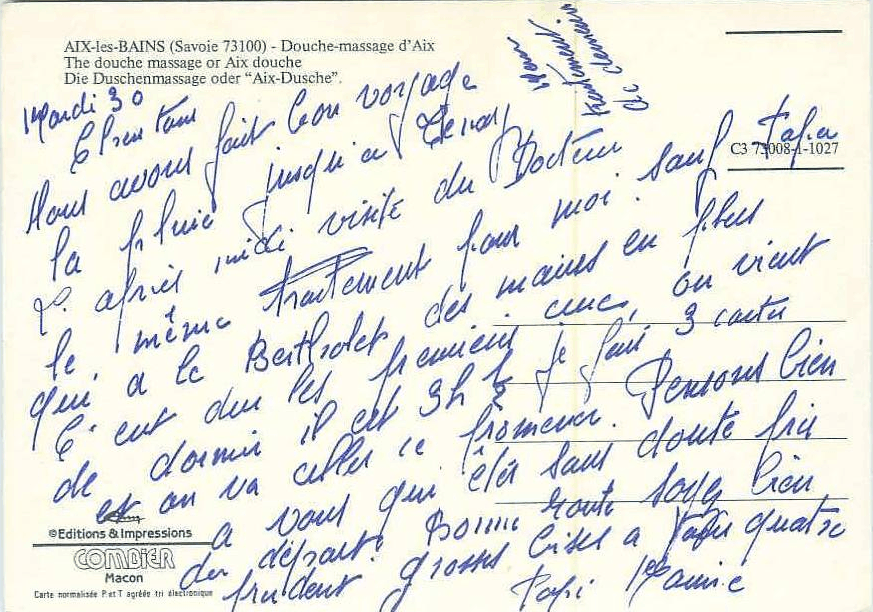 AIX-les-BAINS (Savoie 73100) - Douche-massage d'Aix
The douche massage or Aix douche
Die Duschenmassage oder "Aix-Dusche".
C3 73008-1-1027
Mardi 30
Nous avons fait bon voyage
la pluie jusqu'a
L'après midi visite du Docteur
le même traitement pour moi. sauf Papa
qui a le Berthollet des mains en plus
C'est dur les premiers on vient
de dormir il est 3h ½ je fais 3 cartes
et on va aller ce promener. Pensons bien
a vous qui êtes sans doute près
du départ. Bonne route soyez bien
prudent. grosses bises a vous quatre
Papi Mamie
©Editions & Impressions
COMBIER
Macon
Carte normalisée P et T agréée tri électronique